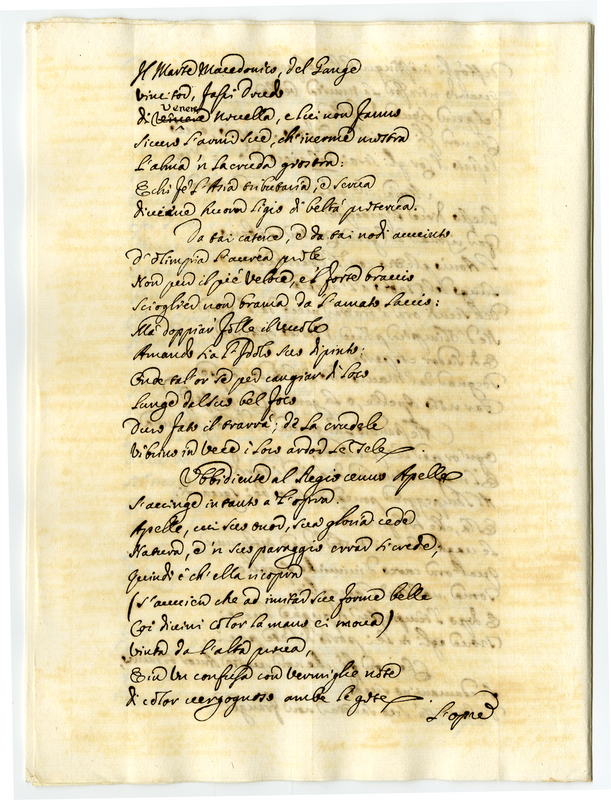 Il Marte Macedonico, del Gange
vincitor, fassi
di Venere novella, e lui non
ch'inerme mostra
L'alma 'n la cruda giostra:
E chi fè l'Asia tributaria, e serva
diviene huom ligio di beltà proterva.
Da tai catene, e da tai nodi avvinto
D'Olimpia l'aurea prole
Non per il piè veloce, e 'l forte braccio
Scioglier non brama da l'amato laccio:
Ma doppiar folle il vuole
Amando L'Idolo suo dipinto:
Onde tal'or se per cangiar di loco
Lunge dal suo bel foco
Duro fato il trarrà; de la crudele
Vibrino in vece i loro ardor le Tele.
Ubbidiente al Regio cenno Apelle
S'accinge in tanto a l'opra.
Apelle, cui suo onor, sua gloria cede
Natura, e 'n suo paraggio error si crede;
Quindi è ch'ella ricopra
(S'avvien che ad imitar sue forme belle
Coi divini color la mano ei mova)
Vinta da l'alta prova,
E in un confusa con vermiglie note
di color vergognoso ambe le gote.
L'opre